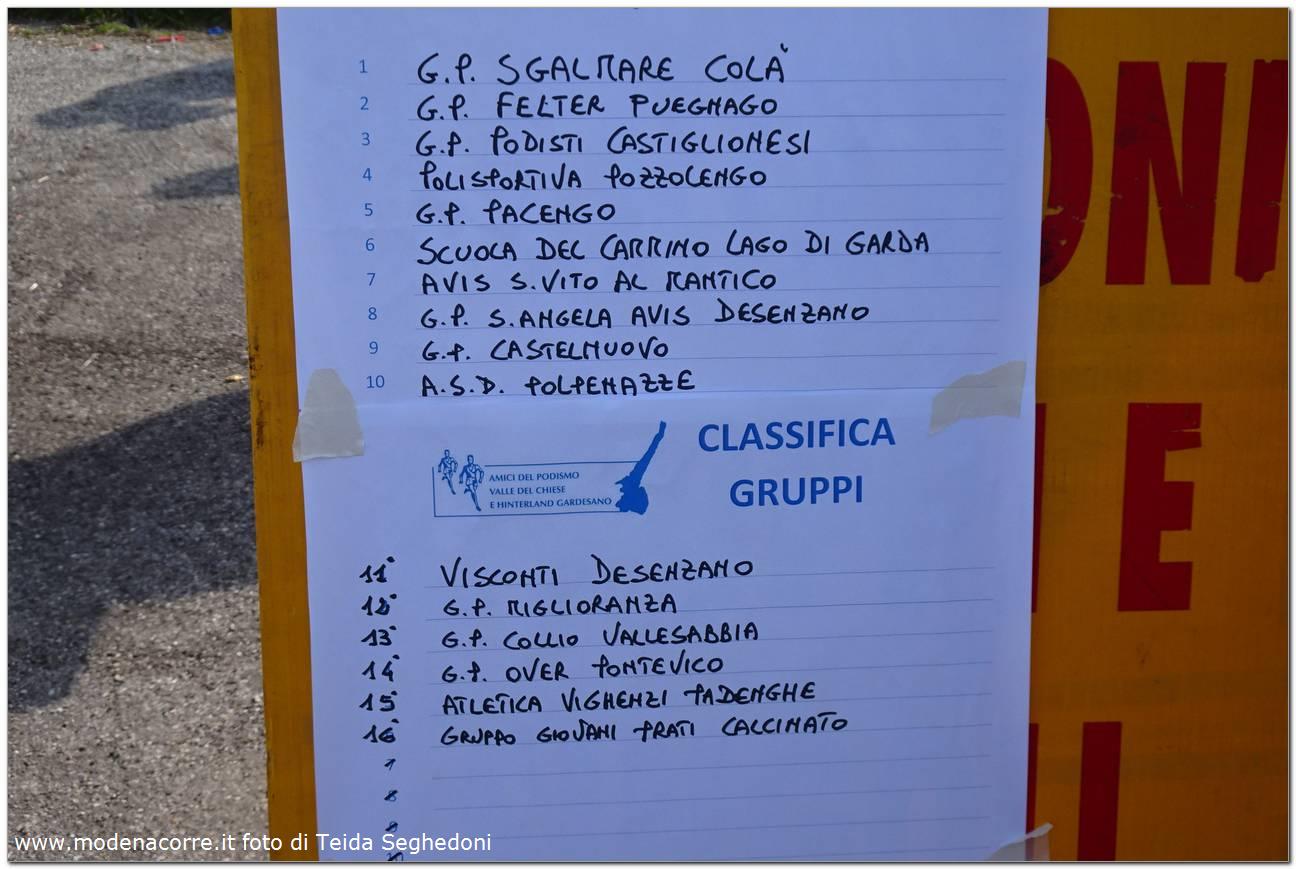 1 G.P. SGALMARE COLÀ
2 G.P. FELTER PUEGNAGO
3 G.P. PODISTI CASTIGLIONESI
4 POLISPORTIVA POZZOLENGO
5 G.P. PACENGO
6 SCUOLA DEL CAMMINO LAGO DI GARDA
7 AVIS S.VITO AL MANTICO
8 G.P. S.ANGELA AVIS DESENZANO
9 G.P. CASTELNUOVO
10 A.S.D. POLPENAZZE
AMICI DEL PODISMO
VALLE DEL CHIESE
E HINTERLAND GARDESANO
CLASSIFICA
GRUPPI
11° VISCONTI DESENZANO
12° G.P. MIGLIORANZA
13° G.P. COLLIO VALLESABBIA
14° G.P. OVER PONTEVICO
15° ATLETICA VIGHENZI PADENGHE
16° GRUPPO GIOVANI PRATI CALCINATO
7
8
9
10
ONI
E
I
www.modenacorre.it foto di Teida Seghedoni